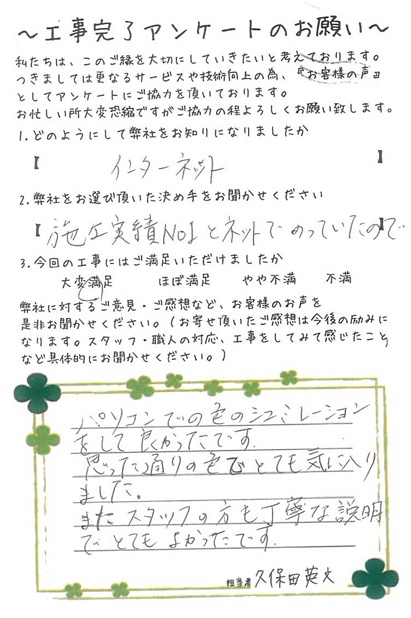 ～工事完了アンケートのお願い～
私たちは、このご縁を大切にしていきたいと考えております。
つきましては更なるサービスや技術向上の為、『お客様の声』
としてアンケートにご協力を頂いております。
お忙しい所大変恐縮ですがご協力の程よろしくお願い致します。
1.どのようにして弊社をお知りになりましたか
【 インターネット 】
2.弊社をお選び頂いた決め手をお聞かせください
【 施工実績No1とネットでのっていたので 】
3.今回の工事にはご満足いただけましたか
大変満足 ほぼ満足 やや不満 不満
弊社に対するご意見・ご感想など、お客様のお声を
是非お聞かせください。（お寄せ頂いたご感想は今後の励みに
なります。スタッフ・職人の対応、工事をしてみて感じたこと
など具体的にお聞かせください。）
パソコンでの色のシュミレーション
をして良かったです.
思った通りの色でとても気に入り
ました。
またスタッフの方も丁寧な説明
でとてもよかったです.
担当者 久保田英文